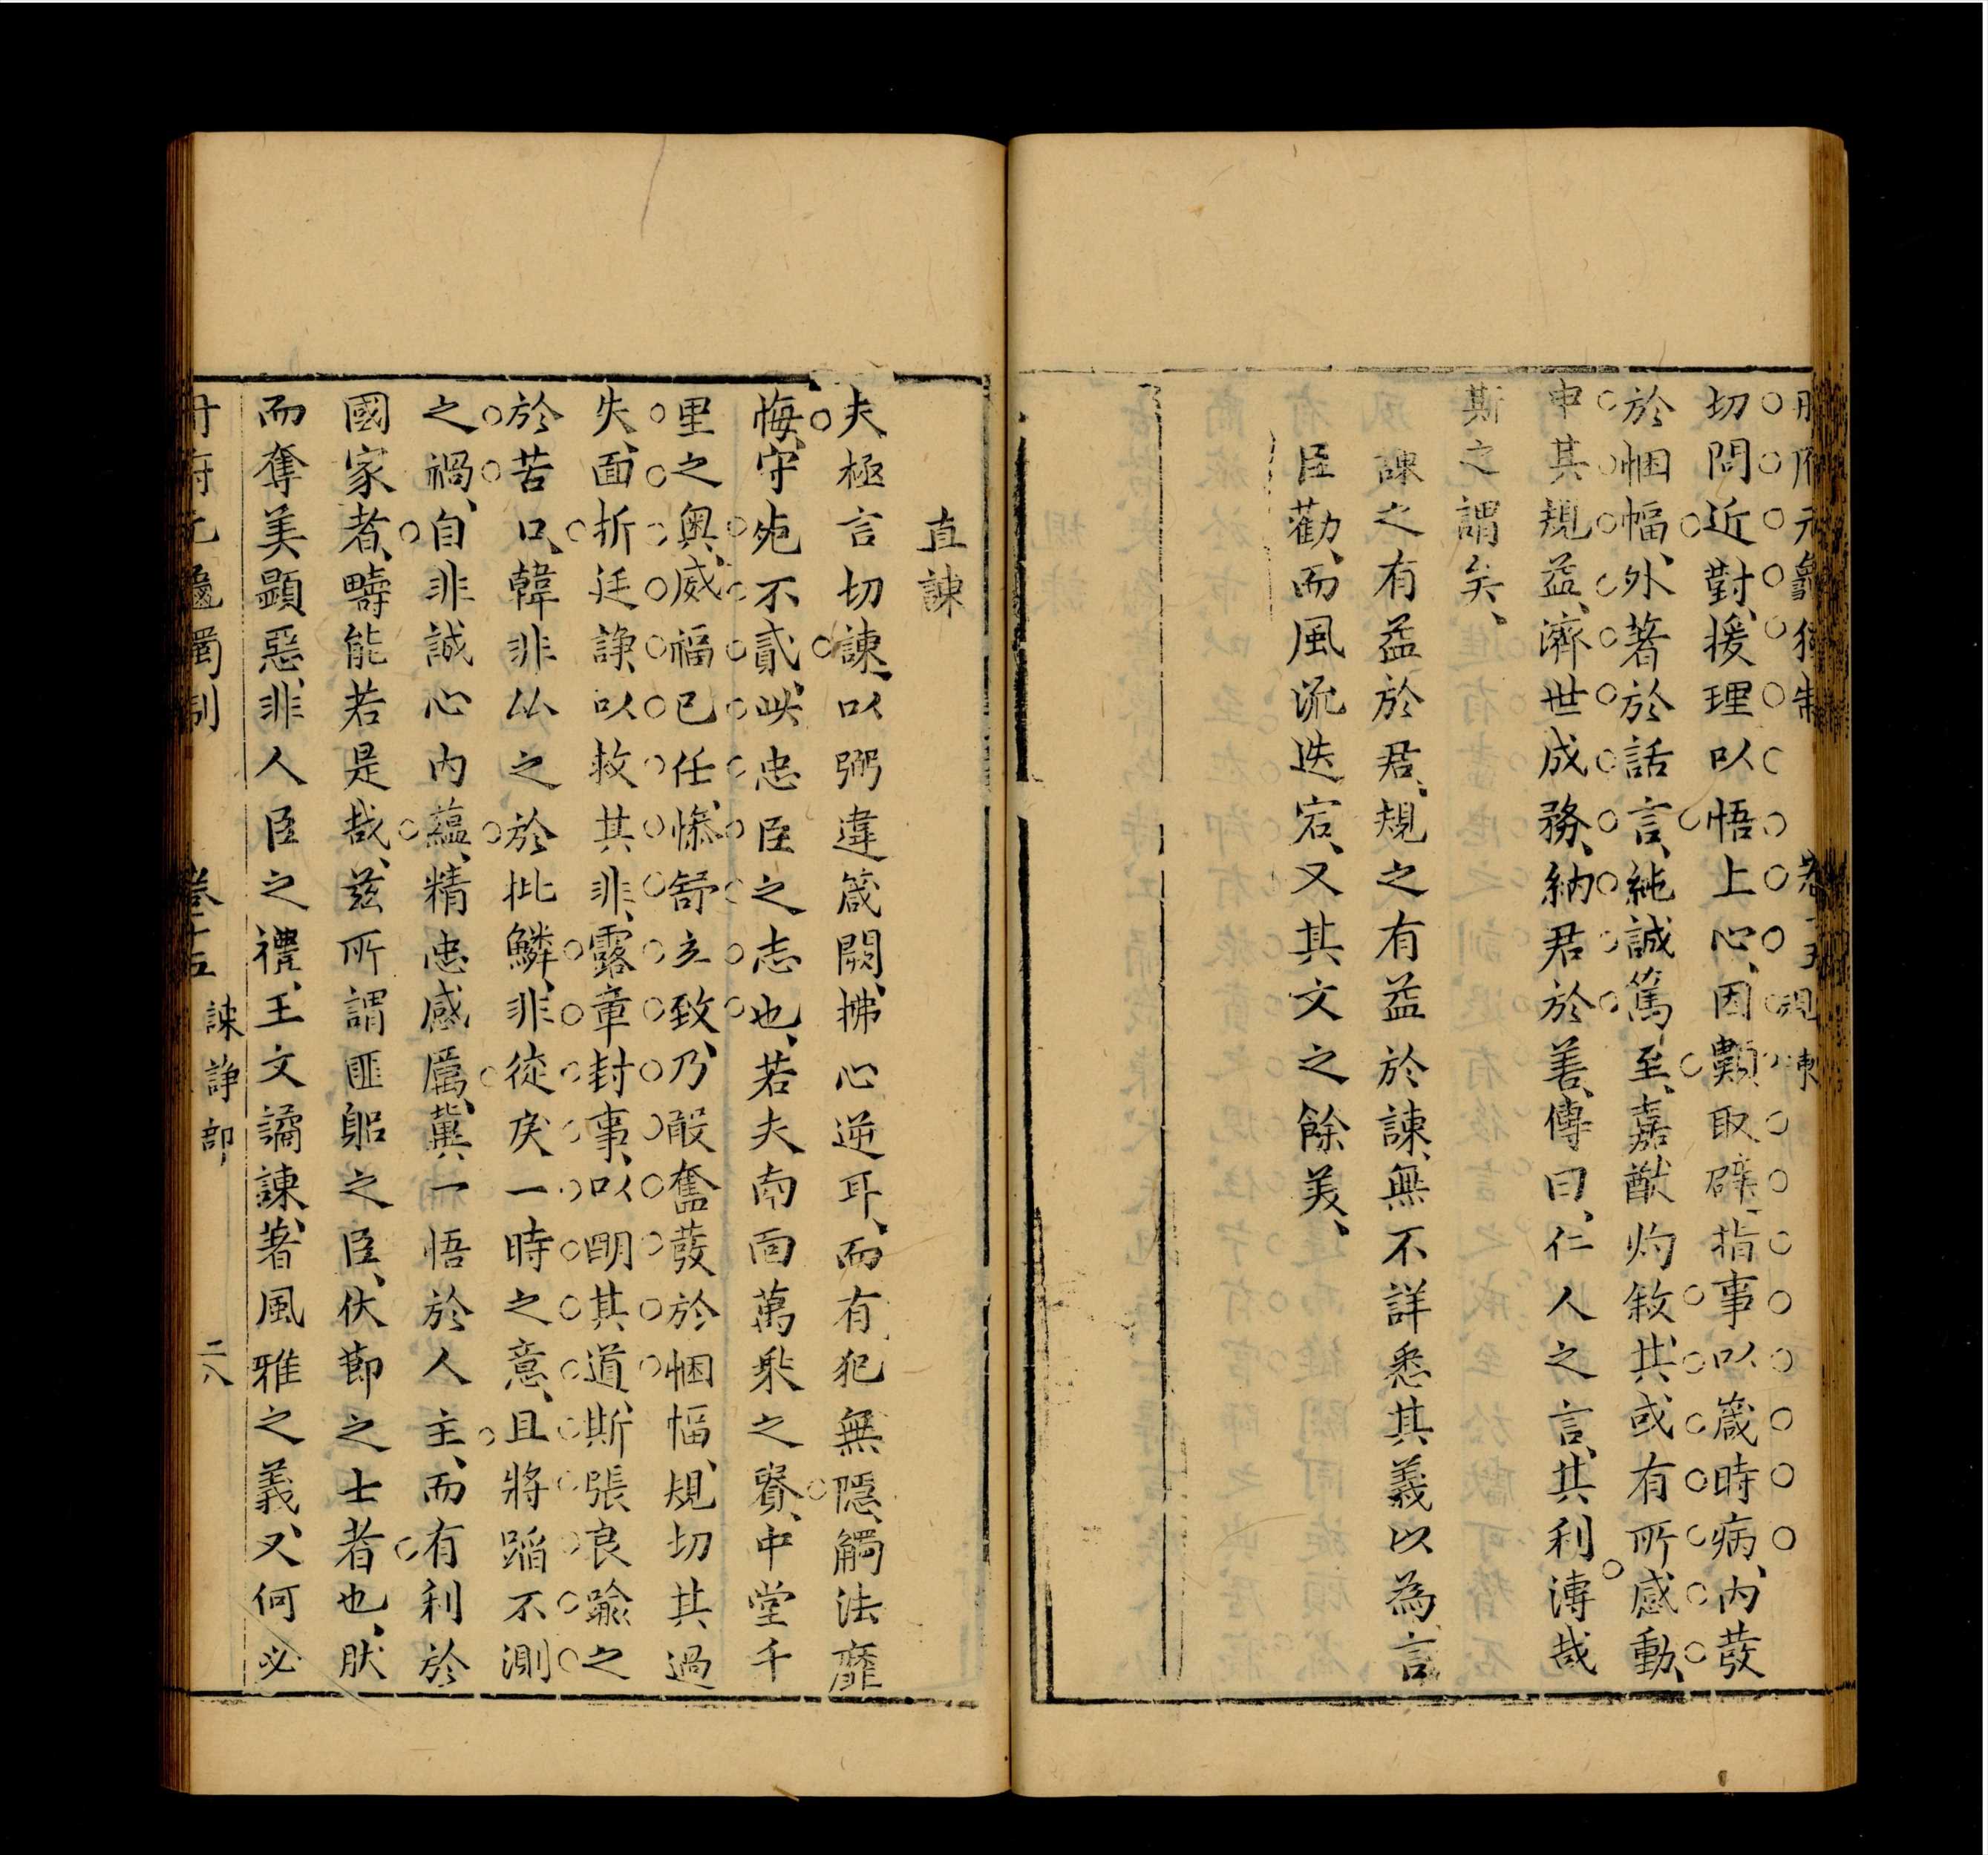 切問近對、援理以悟上心、因類取辟、指事以箴時病、內發
於悃幅、外著於話言、純誠篤至、嘉猷灼敘、其或有所感動、
申其規益、濟世成務、納君於善、傳曰、仁人之言、其利溥哉
斯之謂矣、
諫之有益於君、規之有益於諫、無不詳悉其義以為言
臣勸、而風流迭宕、又其文之餘美、
直諫
夫極言切諫、以弼違箴闕、拂心逆耳、而有犯無隱、觸法靡
悔、守死不貳、此忠臣之志也、若夫南面萬乘之賢、中堂千
里之奧、威福已任、慘舒立致、乃敢奮發於悃幅、規切其過
失、面折廷諍、以救其非、露章封事、以明其道、斯張良諭之
於苦口、韓非以之於批鱗、非徒戾一時之意、且將蹈不測
之禍、自非誠心內蘊、精忠感厲、冀一悟於人主、而有利於
國家者、疇能若是哉、茲所謂匪躬之臣、伏節之士者也、然
而奪美顯惡、非人臣之禮、王文譎諫、著風雅之義、又何必
諫諍部
二八